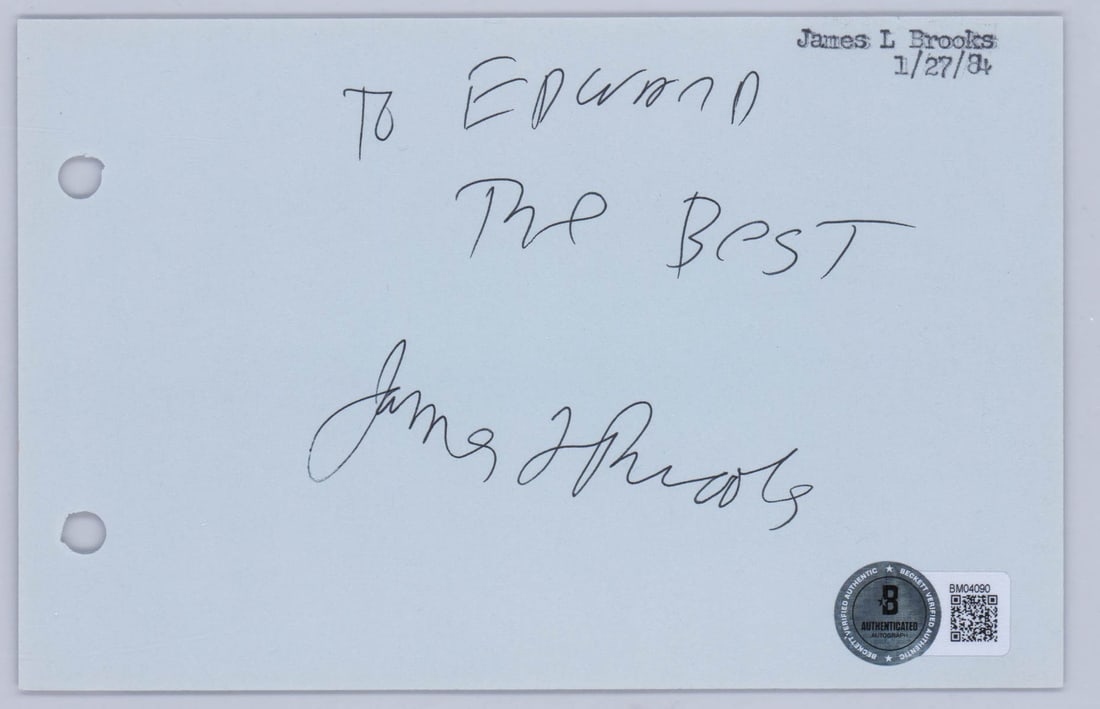 James L Brooks
1/27/84
To EDWARD
The BeST
James L Brooks
BECKETT VERIFIED AUTHENTIC ★ BECKETT VERIFIED AUTHENTIC ★
B
AUTHENTICATED
AUTOGRAPH
BM04090